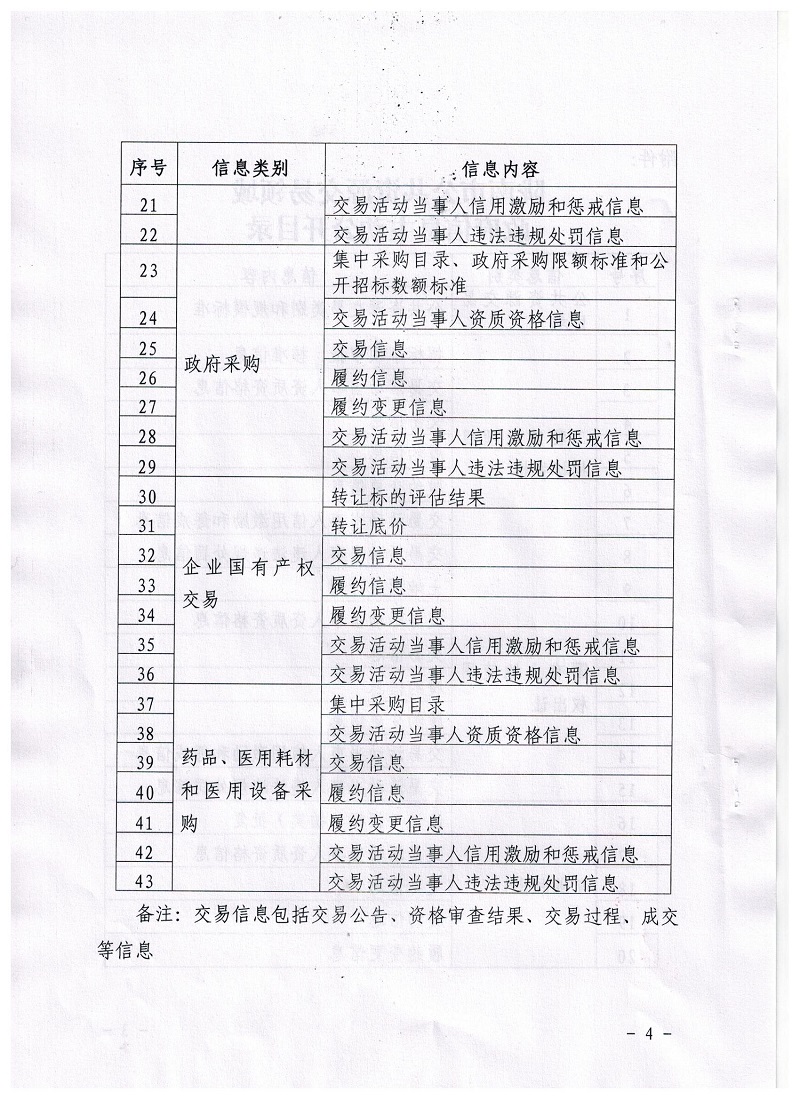 序号 信息类别 信息内容
21 交易活动当事人信用激励和惩戒信息
22 交易活动当事人违法违规处罚信息
23 集中采购目录、政府采购限额标准和公
开招标数额标准
24 交易活动当事人资质资格信息
25 交易信息
政府采购
26 履约信息
27 履约变更信息
28 交易活动当事人信用激励和惩戒信息
29 交易活动当事人违法违规处罚信息
30 转让标的评估结果
31 转让底价
32 交易信息
企业国有产权
33 履约信息
交易
34 履约变更信息
35 交易活动当事人信用激励和惩戒信息
36 交易活动当事人违法违规处罚信息
37 集中采购目录
38 交易活动当事人资质资格信息
39 药品、医用耗材 交易信息
40 和医用设备采 履约信息
41 购 履约变更信息
42 交易活动当事人信用激励和惩戒信息
43 交易活动当事人违法违规处罚信息
备注：交易信息包括交易公告、资格审查结果、交易过程、成交
等信息
- 4 -